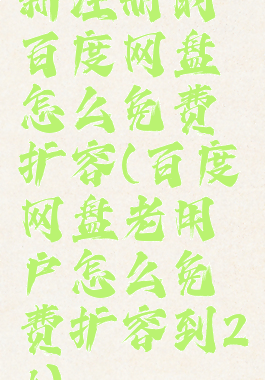 新注册的
百度网盘
怎么免费
扩容(百度
网盘老用
户怎么免
费扩容到2